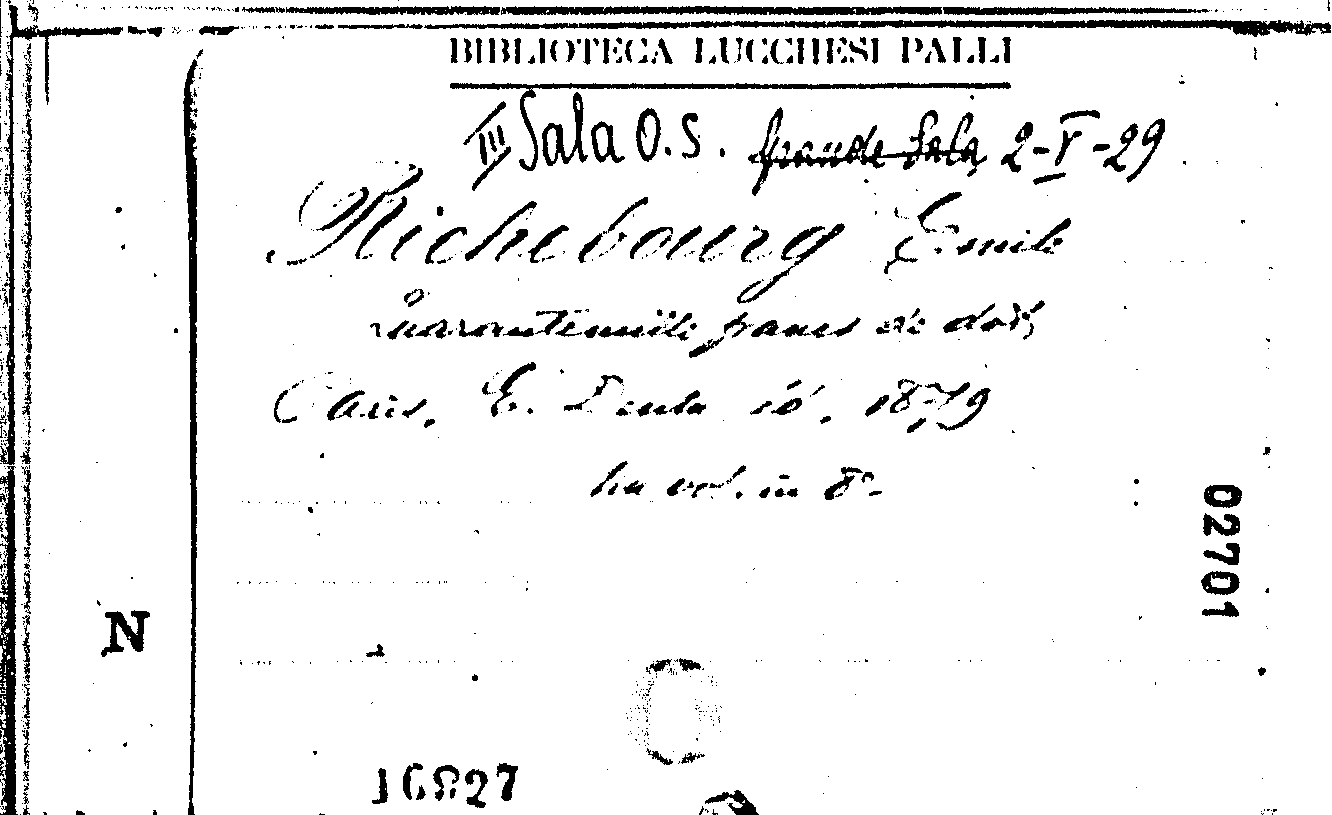 BIBLIOTECA LUCCHESI PALLI
III Sala O.S. Grande Sala 2-V-29
Richebourg Emile
Quarantemille francs de dot,
Paris, E. Dentu éd., 1879
Un vol. in 8°-
02701
N
16827